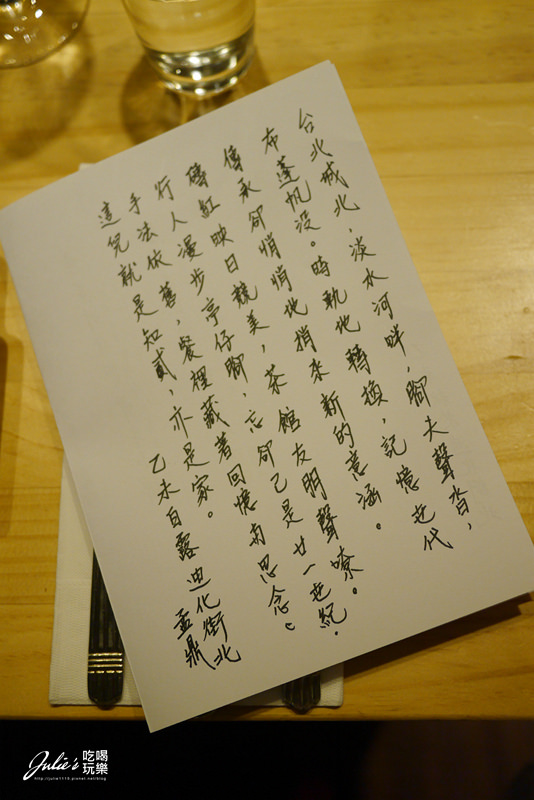 台北城北,淡水河畔,腳夫聲沓,
布蓬帆没。時軌地轉換,記憶世代
傳承卻悄悄地捎來新的意涵。
磚紅映日競美,茶館友朋聲嘹。
行人漫步亭仔腳,忘卻已是廿一世紀.
手法依舊,餐裡藏著回憶與思念。
這兒就是知貳,亦是家。
乙未白露 迪化街北
孟鼎
Julie's 吃喝玩樂
http://julie1115.pixnet.net/blog